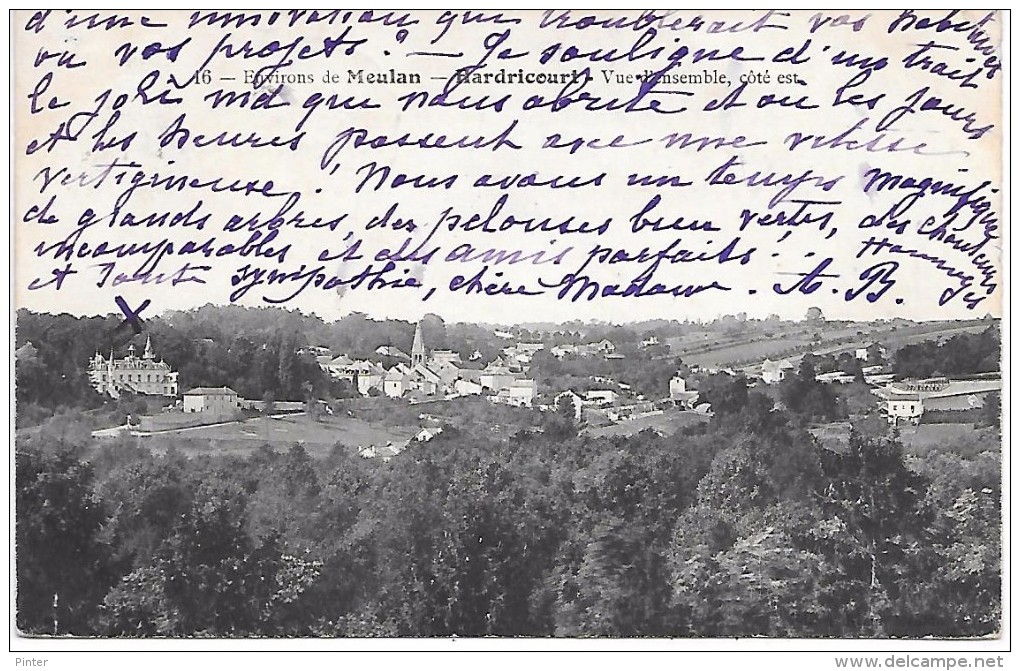 d'une innovation que troublerait vos habitudes
ou vos projets ? — Je souligne d'un trait
16 — Environs de Meulan — Hardricourt — Vue d'ensemble, côté est
le joli nid que nous abrite et où les jours
et les heures passent avec une vitesse
vertigineuse ! Nous avons un temps magnifique
de grands arbres, des pelouses bien vertes, des
incomparables et des amis parfaits !..
Hommages
et toute sympathie, chère Madame. A. B.
Pinter
www.delcampe.net